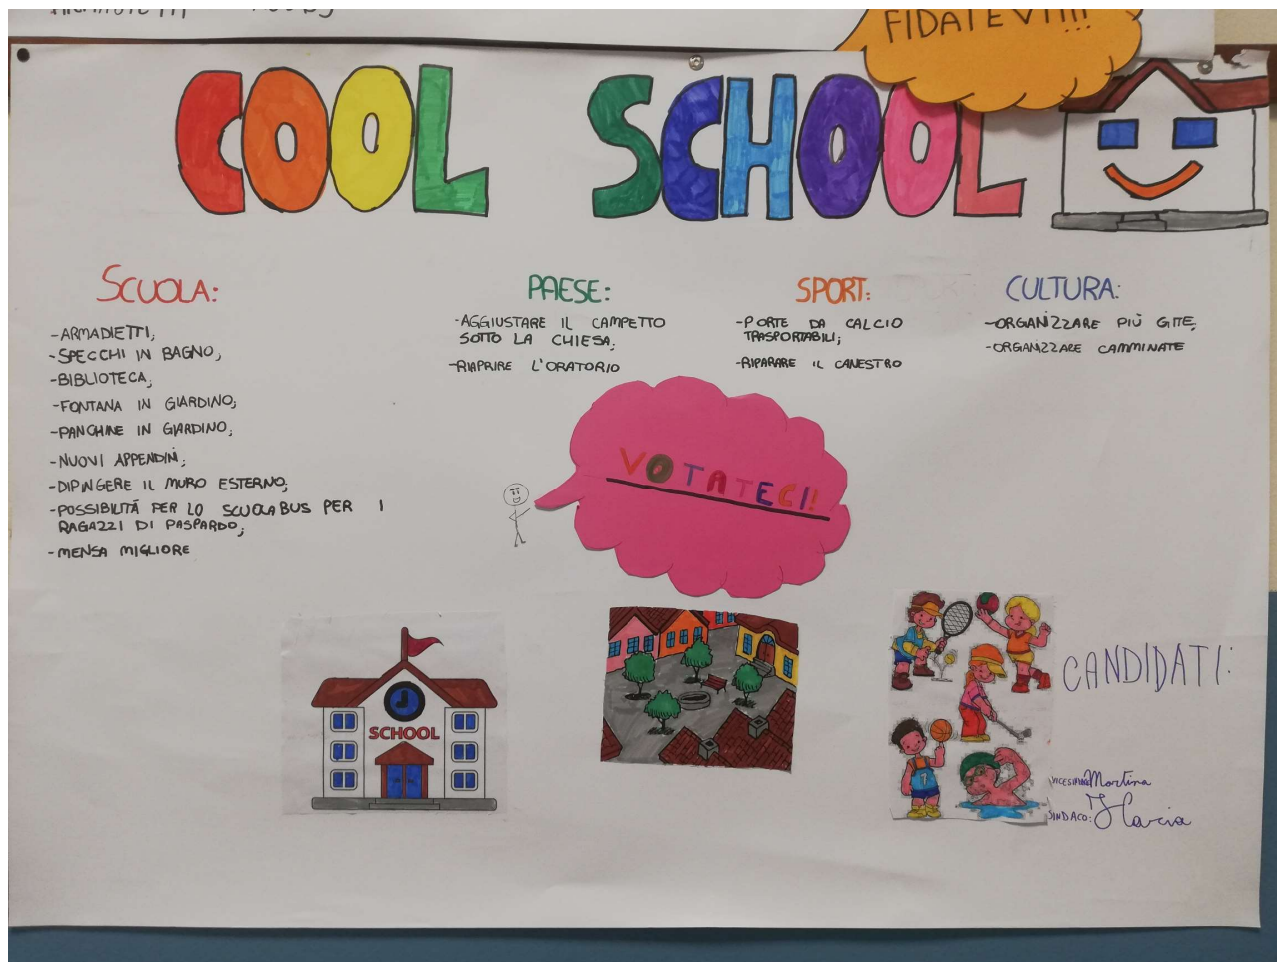 FIDATEVI!!!
COOL SCHOOL
SCUOLA:
-ARMADIETTI;
-SPECCHI IN BAGNO;
-BIBLIOTECA;
-FONTANA IN GIARDINO;
-PANCHINE IN GIARDINO;
-NUOVI APPENDINI;
-DIPINGERE IL MURO ESTERNO;
-POSSIBILITÀ PER LO SCUOLABUS PER I
RAGAZZI DI PASPARDO;
-MENSA MIGLIORE
PAESE:
-AGGIUSTARE IL CAMPETTO
SOTTO LA CHIESA;
-RIAPRIRE L'ORATORIO
SPORT:
-PORTE DA CALCIO
TRASPORTABILI;
-RIPARARE IL CANESTRO
CULTURA:
-ORGANIZZARE PIÙ GITE;
-ORGANIZZARE CAMMINATE
VOTATECI!
SCHOOL
7
CANDIDATI:
VICESINDACO: Martina
SINDACO: Ilaria